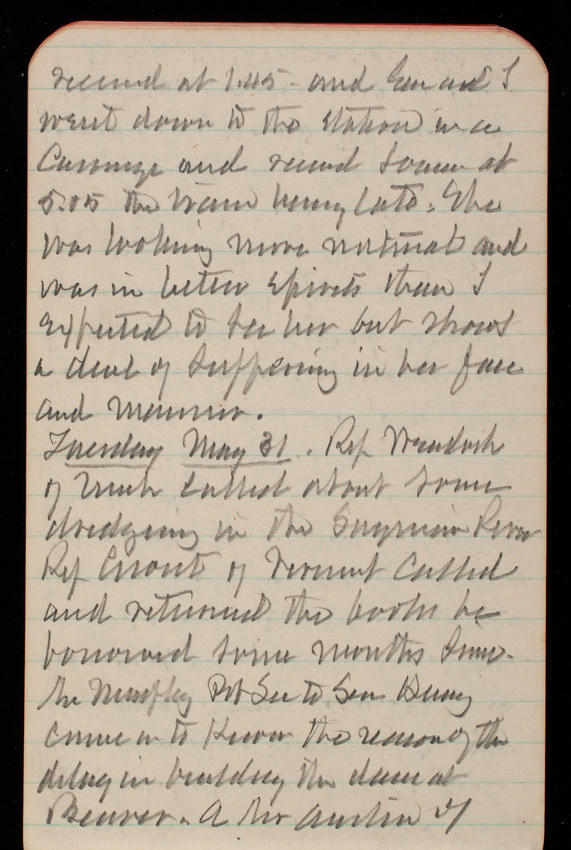 second at 1.45 and Eva and I
went down to the station in a
Carriage and at
5.05 the train being late. She
was looking more natural and
was in better spirits than I
expected to see her but shows
a deal of suffering in her face
and manner.
Tuesday May 31. Rep
of Mich called about some
dredging in the Saginaw River
Rep Grout of Vermont called
and returned the books he
borrowed some months since.
Mr Pvt Sec to Sen Quay
came in to know the reason of the
delay in building the dam at
Beaver. A Mr Austin of